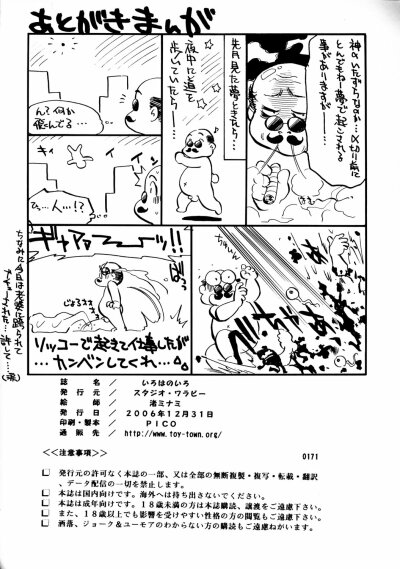 あとがきまんが
神のいたずらなのか…〆切り前に
とんでもねー夢で起こされる
事がありますが──
先月見た夢ときたら…
夜中に道を
歩いていたら──
ん？何か
飛んでる…
キィ
キィ
ひ…人…!?
ギャアァァーッ!!
ソッコーで起きて仕事したが
カンベンしてくれ…
誌　名　／　いろはのいろ
発行元　／　スタジオ・ワラビー
絵　師　／　渚ミナミ
発行日　／　２００６年１２月３１日
印刷・製本　／　ＰＩＣＯ
通販先　／　http://www.toy-town.org/
<<注意事項>>
0171
□ 発行元の許可なく本誌の一部、又は全部の無断複製・複写・転載・翻訳
、データ配信の一切を禁止します。
□ 本誌は国内向けです。海外へは持ち出さないでください。
□ 本誌は成年向けです。１８歳未満の方は本誌の購読、譲渡をご遠慮下さい。
□ また、１８歳以上でも影響を受けやすい性格の方の閲覧もご遠慮下さい。
□ 洒落、ジョーク＆ユーモアのわからない方の購読もご遠慮ねがいます。